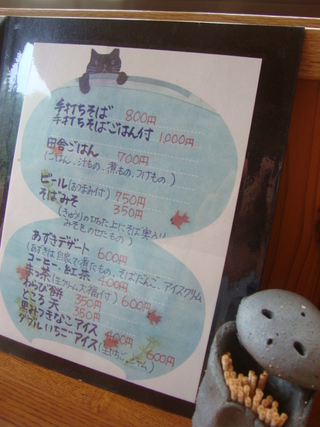 手打ちそば 800円
手打ちそばごはん付 1,000円
田舎ごはん 700円
(ごはん、汁もの、煮もの、つけもの)
ビール(おつまみ付) 750円
そばみそ 350円
(きゅうりの切た上にそば実入り
みそをのせたもの)
あずきデザート 600円
(あずきは自家で煮たもの、そばだんご、アイスクリーム
コーヒー・紅茶 400円
まっ茶(生クリーム大福付) 600円
わらび餅 350円
ところ天 350円
黒みつきなこアイス 400円
ダブルいちごーアイス 600円